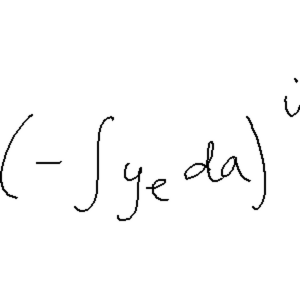 (-∫y_e da)^i